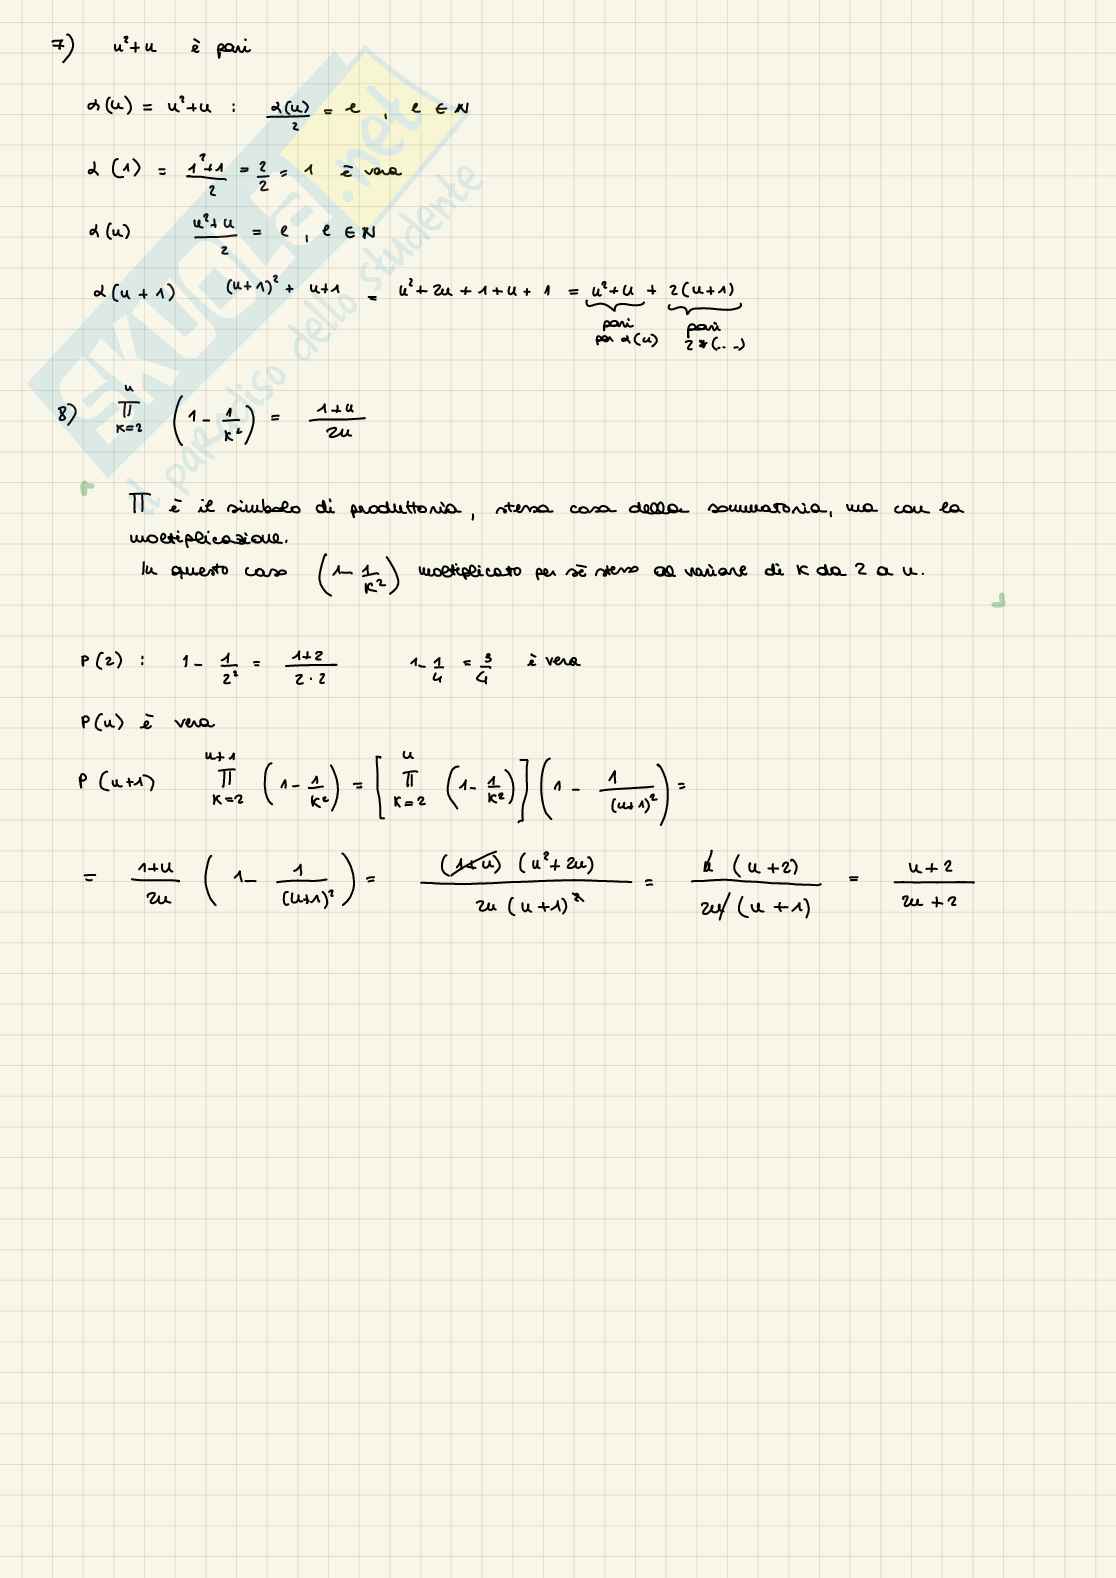 7) n²+n è pari
α(n) = n²+n : α(n)/2 = l , l ∈ N
α(1) = (1²+1)/2 = 2/2 = 1 è vera
α(n) (n²+n)/2 = l , l ∈ N
α(n+1) (n+1)² + n+1 = n²+2n+1+n+1 = n²+n + 2(n+1)
pari pari
per α(n) 2*(...)
8) ∏_{k=2}^{n} (1 - 1/k²) = (1+n)/2n
∏ è il simbolo di produttoria, stessa cosa della sommatoria, ma con la
moltiplicazione.
In questo caso (1 - 1/k²) moltiplicato per sé stesso al variare di k da 2 a n.
P(2) : 1 - 1/2² = (1+2)/(2·2) 1 - 1/4 = 3/4 è vera
P(n) è vera
P(n+1) ∏_{k=2}^{n+1} (1 - 1/k²) = [∏_{k=2}^{n} (1 - 1/k²)] (1 - 1/(n+1)²) =
= (1+n)/2n (1 - 1/(n+1)²) = (1+n)(n²+2n)/2n(n+1)² = n(n+2)/2n(n+1) = (n+2)/(2n+2)
SKUOLA.net
il paradiso dello studente